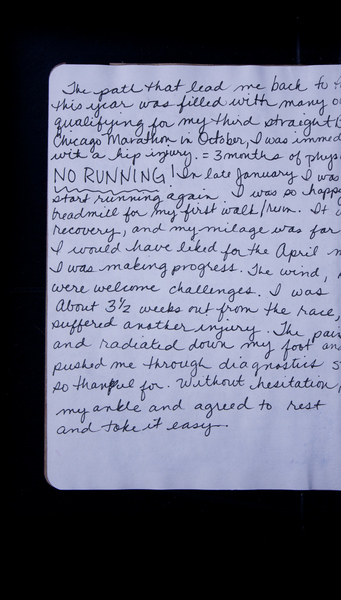 The path that lead me back to
this year was filled with many
qualifying for my third straight
Chicago Marathon in October, I was immed
with a hip injury. = 3 months of phys
NO RUNNING! In late January I was
start running again. I was so happ
treadmill for my first walk/run. It
recovery, and my milage was far
I would have liked for the April
I was making progress. The wind,
were welcome challenges. I was
About 3½ weeks out from the race,
suffered another injury. The pain
and radiated down my foot and
pushed me through diagnostics
so thankful for. Without hesitation,
my ankle and agreed to rest
and take it easy.